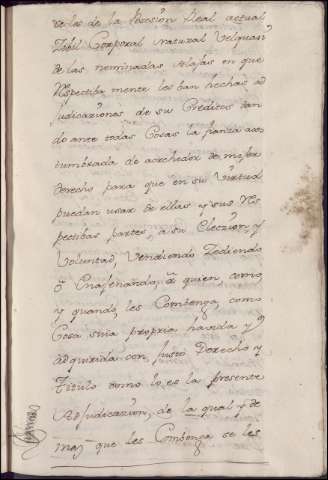 de la de la Posesion Real actual
Zibil Corporal natural Velquasi
de las nominadas Alajas en que
Respectiba mente les ban hechas ad
judicaziones de su Creditos dan
do ante todas Cosas la fianza acos
tumbrada de acrehedor de mejor
derecho para que en su Virtud
puedan usar de ellas y sus Res
pectibas partes, a su Eleczion, y
Voluntad, Vendiendo Zediendo
ô Enajenando, â quien, como,
y quando, les Combenga, como
Cosa suia propria havida y
adquirida con justo Derecho y
Titulo como lo es la presente
Adjudicazion, de la qual y de
mas que les Combenga se les